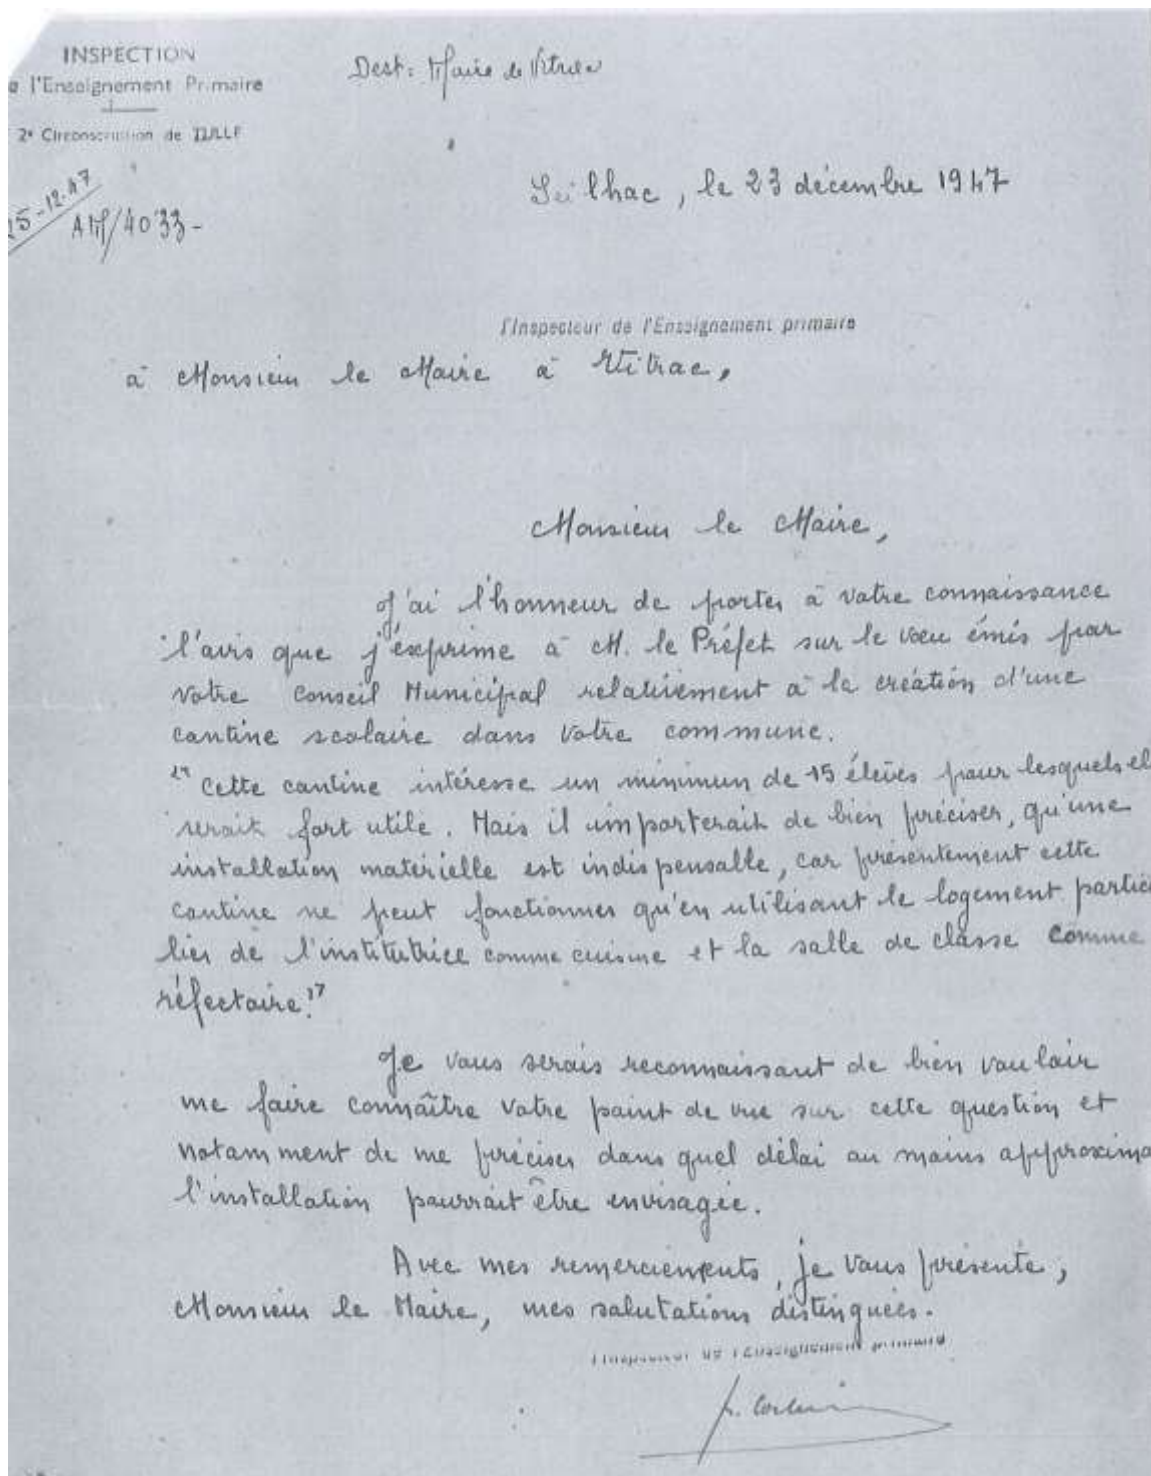 INSPECTION
l'Enseignement Primaire
2e Circonscription de TULLE
Dest: Maire de Vitrac
25-12-47
AM/4033-
Seilhac, le 23 décembre 1947
l'Inspecteur de l'Enseignement primaire
à Monsieur le Maire à Vitrac,
Monsieur le Maire,
J'ai l'honneur de porter à votre connaissance
l'avis que j'exprime à M. le Préfet sur le vœu émis par
votre Conseil Municipal relativement à la création d'une
cantine scolaire dans votre commune.
"Cette cantine intéresse un minimun de 15 élèves pour lesquels el
serait fort utile. Mais il importerait de bien préciser, qu'une
installation matérielle est indispensable, car présentement cette
cantine ne peut fonctionner qu'en utilisant le logement particu
lier de l'institutrice comme cuisine et la salle de classe comme
réfectoire."
Je vous serais reconnaissant de bien vouloir
me faire connaître votre point de vue sur cette question et
notamment de me préciser dans quel délai au moins approxima
l'installation pourrait être envisagée.
Avec mes remerciements, je vous présente,
Monsieur le Maire, mes salutations distinguées.
l'Inspecteur de l'Enseignement primaire